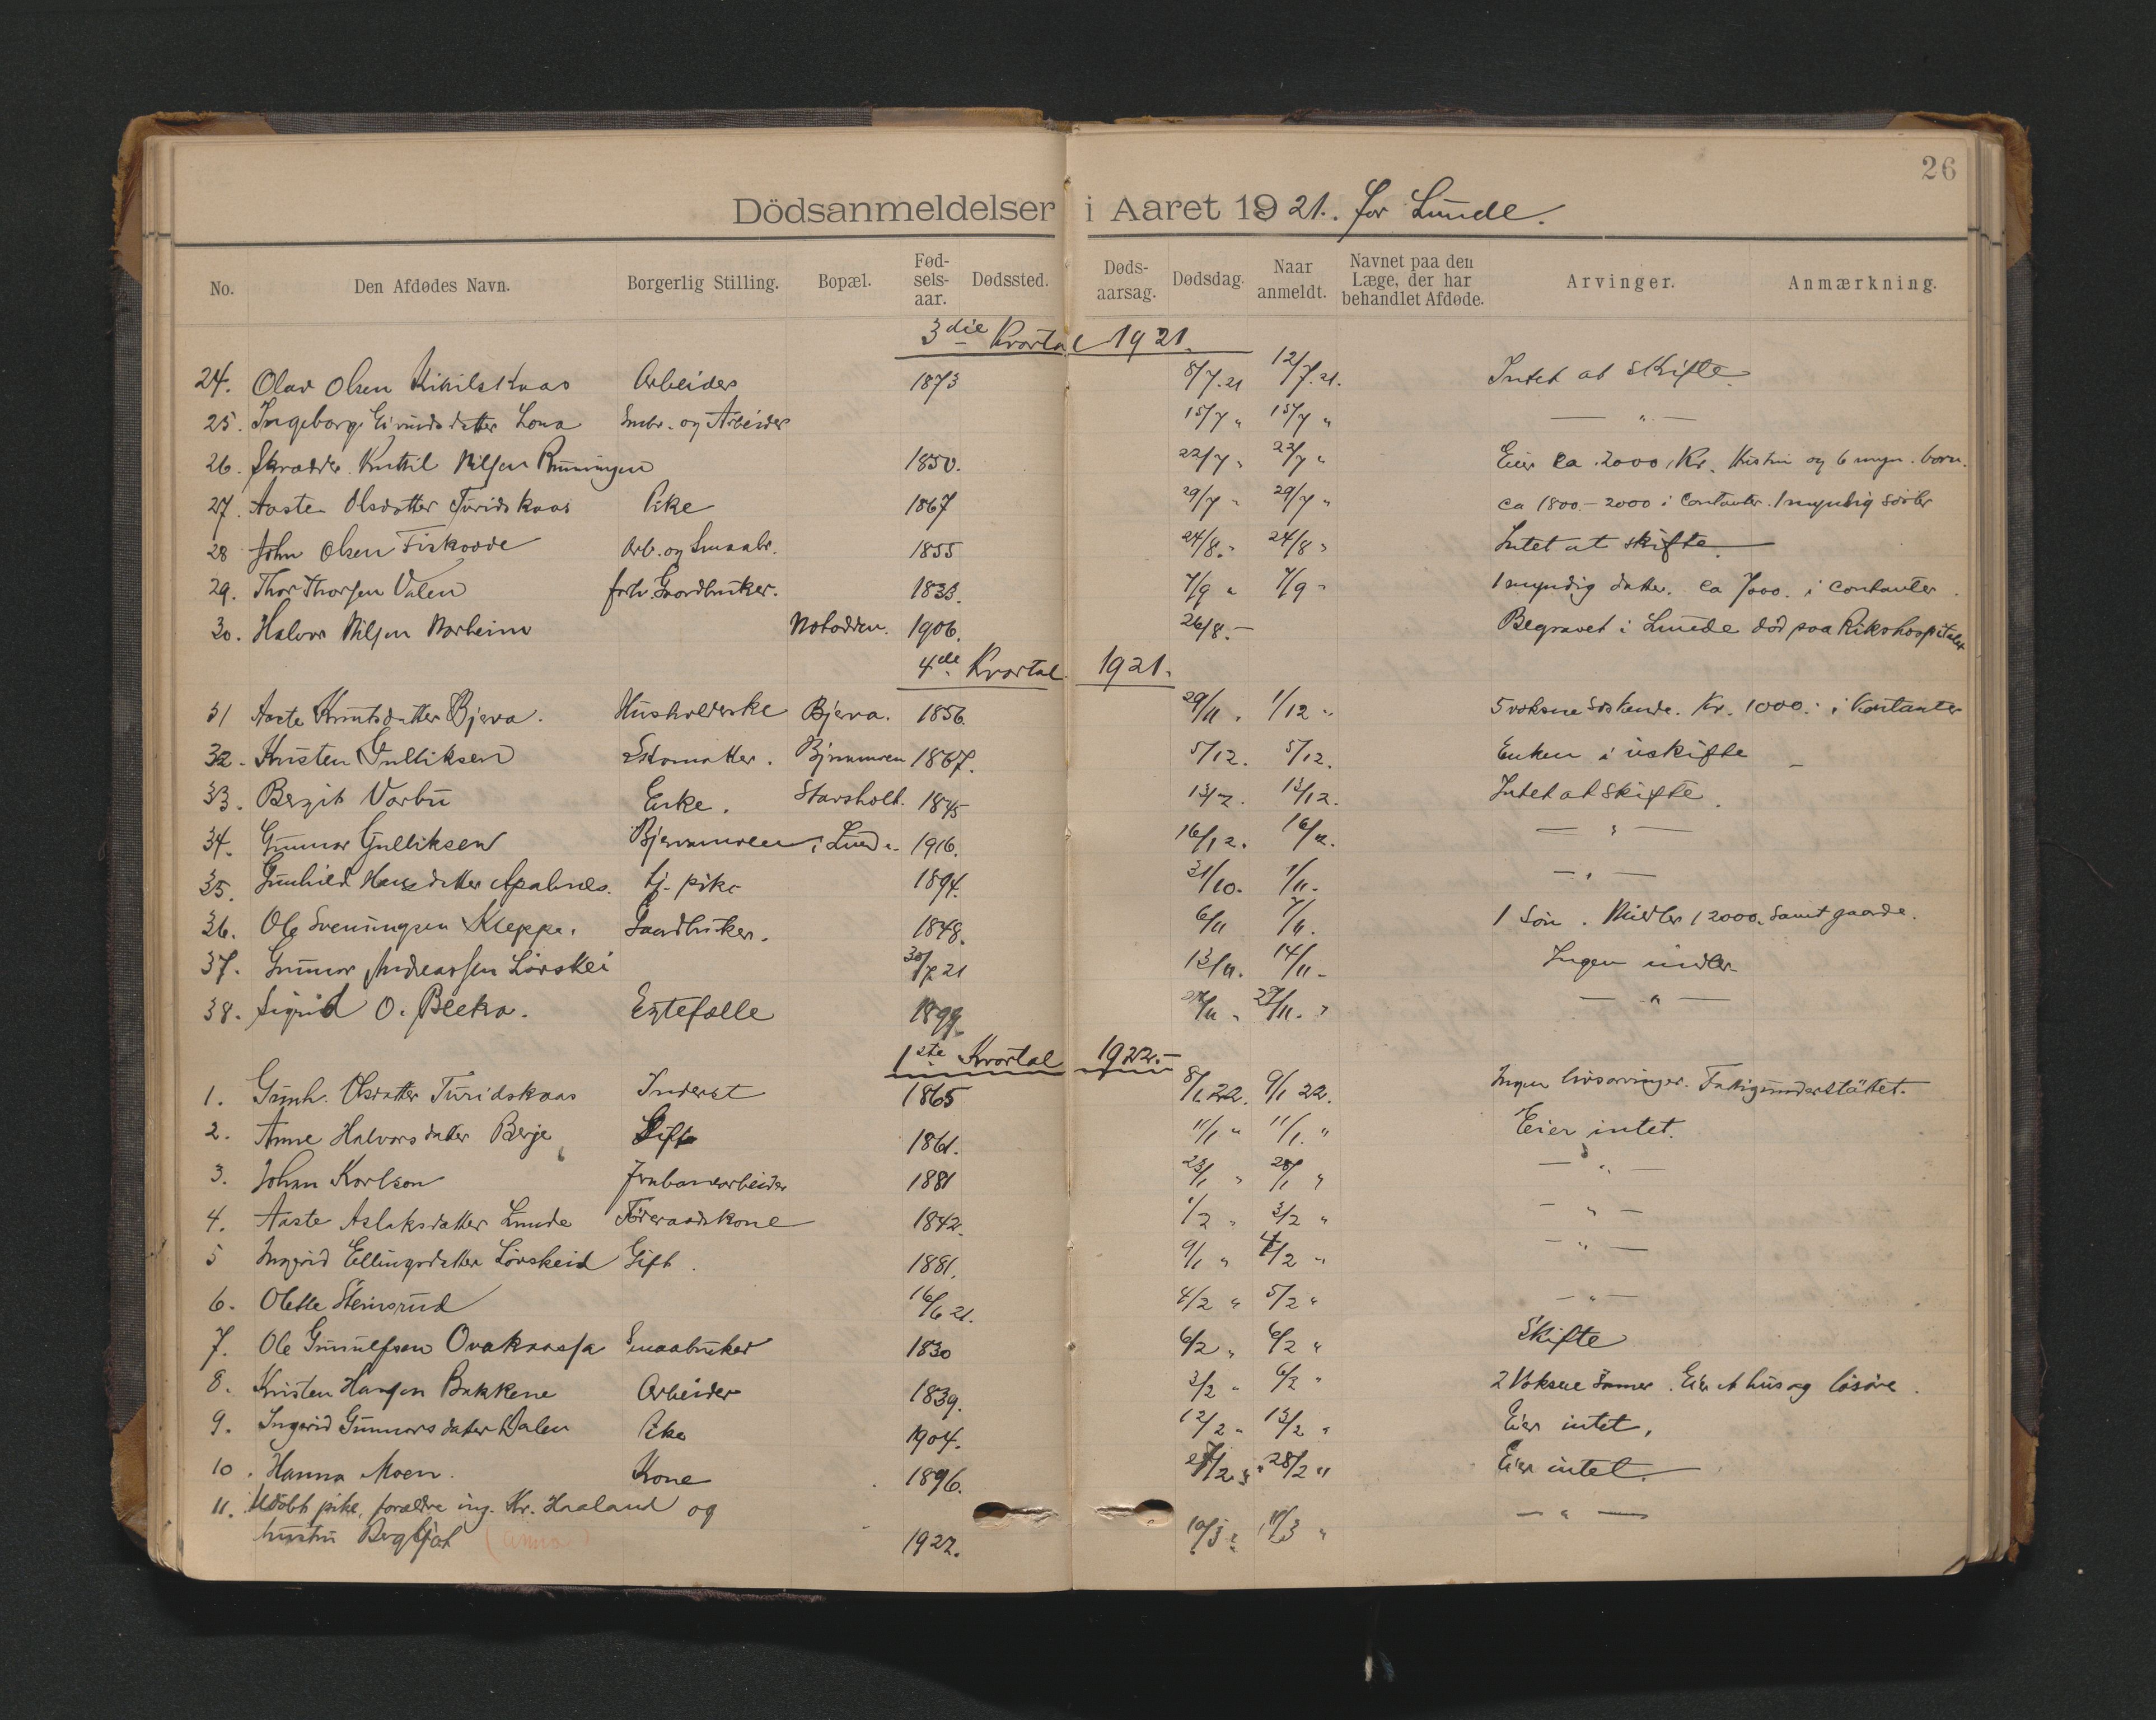 26
Dödsanmeldelser i Aaret 1921. for Lunde.
No. Den Afdødes Navn. Borgerlig Stilling. Bopæl. Fød-sels-aar. Dødssted. Døds-aarsag. Dødsdag. Naar anmeldt. Navnet paa den Læge, der har behandlet Afdøde. Arvinger. Anmærkning.
3die Kvartal 1921.
24. Olav Olsen Kikilskaas Arbeider 1873 8/7.21 12/7.21. Intet at skifte.
25. Ingeborg Eivindsdatter Lona Smbr. og Arbeider 15/7 " 15/7 " — " —
26. Skrædder Kittil Nilsen Rønningen 1850. 22/7 " 22/7 " Eier ca 2000 Kr. Hustru og 6 myn. born.
27. Aaste Olsdatter Turidskaas Pike 1867 29/7 " 29/7 " ca 1800.-2000 i Contanter. 1 myndig
28 John Olsen Fiskodde Arb. og Smaabr. 1855 24/8. " 24/8 " Intet at skifte.
29. Thor Thorsen Valen forh. Gaardbruker. 1833. 7/9 " 7/9 " 1 myndig datter. ca 7000. i contanter.
30. Halvor Nilsen Norheim Notodden. 1906. 26/8.- Begravet i Lunde død paa Rikshospitalet
4de Kvartal 1921.
31 Aaste Knutsdatter Bjerva. Husholderske Bjerva. 1856. 29/11 " 1/12 " 5 voksne søskende. Kr. 1000.- i Kontanter
32. Kristen Gulliksen Skomaker. Bjervamoen 1867. 5/12. 5/12. Enken i uskifte
33. Bergit Vorbu Enke. Stavsholt. 1845 13/12. 13/12. Intet at skifte.
34. Gunnar Gulliksen Bjervamoen i Lunde. 1916. 16/12. 16/12. — " —
35. Gunhild Hansdatter Apalnes. tj. pike 1894. 31/10. 1/11. — " —
36. Ole Sveinungsen Kleppe. Gaardbruker. 1848. 6/11 7/11. 1 Søn. Midler 12000. samt gaarde.
37. Gunnar Andreassen Lövskei 30/7 21 13/11. 14/11. Ingen midler
38. Sigrid O. Bleka. Egtefælle 1899. 27/11 " 27/11. " — " —
1ste Kvartal 1922.-
1. Gunh. Olsdatter Turidskaas Inderst 1865 8/1 22. 9/1 22. Ingen livsarvinger. Fattigunderstöttet.
2. Anne Halvorsdatter Berje Gift 1861. 11/1 " 11/1. " Eier intet.
3. Johan Karlson Jrnbanearbeider 1881 23/1 " 28/1 " — " —
4. Aaste Aslaksdatter Lunde Föderaadskone 1842. 1/2 " 3/2 " — " —
5 Ingerid Ellingsdatter Lövskeid Gift. 1881. 9/1 " 4/2 " — " —
6. Olette Steinsrud 16/6 21. 4/2 " 5/2 " — " —
7. Ole Gunnulfsen Ovakaasa Smaabruker 1830 6/2 " 6/2 " Skifte
8. Kristen Hansen Bakkene Arbeider 1839. 3/2 " 6/2 " 2 Voksne Sønner. Eier et hus og lösöre.
9. Ingerid Gunnarsdatter Dalen Pike 1904. 12/2 " 13/2 " Eier intet,
10. Hanna Moen. Kone 1896. 27/2 " 28/2 " Eier intet.
11. Udöbt pike, forældre ing. Kr. Haaland og 10/3 " 11/3 " — " —
hustru Bergljot 1922.